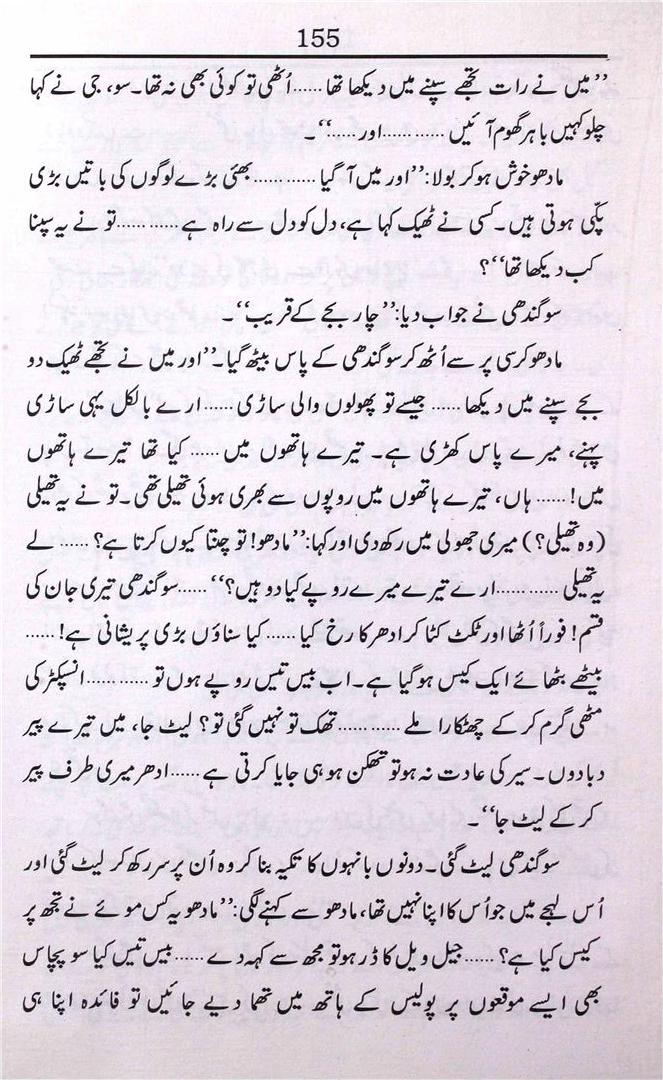 155
”میں نے رات تجھے سپنے میں دیکھا تھا......اُٹھی تو کوئی بھی نہ تھا۔سو، جی نے کہا
چلو کہیں باہر گھوم آئیں............اور.....“۔
مادھو خوش ہو کر بولا:”اور میں آ گیا............بھئی بڑے لوگوں کی باتیں بڑی
پکّی ہوتی ہیں۔کسی نے ٹھیک کہا ہے، دل کو دل سے راہ ہے............تو نے یہ سپنا
کب دیکھا تھا“؟
سوگندھی نے جواب دیا:”چار بجے کے قریب“۔
مادھو کرسی پر سے اُٹھ کر سوگندھی کے پاس بیٹھ گیا۔”اور میں نے تجھے ٹھیک دو
بجے سپنے میں دیکھا......جیسے تو پھولوں والی ساڑی......ارے بالکل یہی ساڑی
پہنے، میرے پاس کھڑی ہے۔ تیرے ہاتھوں میں......کیا تھا تیرے ہاتھوں
میں!......ہاں، تیرے ہاتھوں میں روپوں سے بھری ہوئی تھیلی تھی۔تو نے یہ تھیلی
(وہ تھیلی؟) میری جھولی میں رکھ دی اور کہا:”مادھو! تو چنتا کیوں کرتا ہے؟......لے
یہ تھیلی............ارے تیرے میرے روپے کیا دو ہیں؟“......سوگندھی تیری جان کی
قسم! فوراً اُٹھا اور ٹکٹ کٹا کر ادھر کا رخ کیا......کیا سناؤں بڑی پریشانی ہے!......
بیٹھے بٹھائے ایک کیس ہو گیا ہے۔اب بیس تیس روپے ہوں تو............انسپکٹر کی
مٹھی گرم کر کے چھٹکارا ملے............تھک تو نہیں گئی تو؟ لیٹ جا، میں تیرے پیر
دبا دوں۔سیر کی عادت نہ ہو تو تھکن ہو ہی جایا کرتی ہے......ادھر میری طرف پیر
کر کے لیٹ جا“۔
سوگندھی لیٹ گئی۔دونوں بانہوں کا تکیہ بنا کر وہ اُن پر سر رکھ کر لیٹ گئی اور
اُس لہجے میں جو اُس کا اپنا نہیں تھا، مادھو سے کہنے لگی:”مادھو یہ کس موئے نے تجھ پر
کیس کیا ہے؟......جیل ویل کا ڈر ہو تو مجھ سے کہہ دے......بیس تیس کیا سو پچاس
بھی ایسے موقعوں پر پولیس کے ہاتھ میں تھما دیے جائیں تو فائدہ اپنا ہی